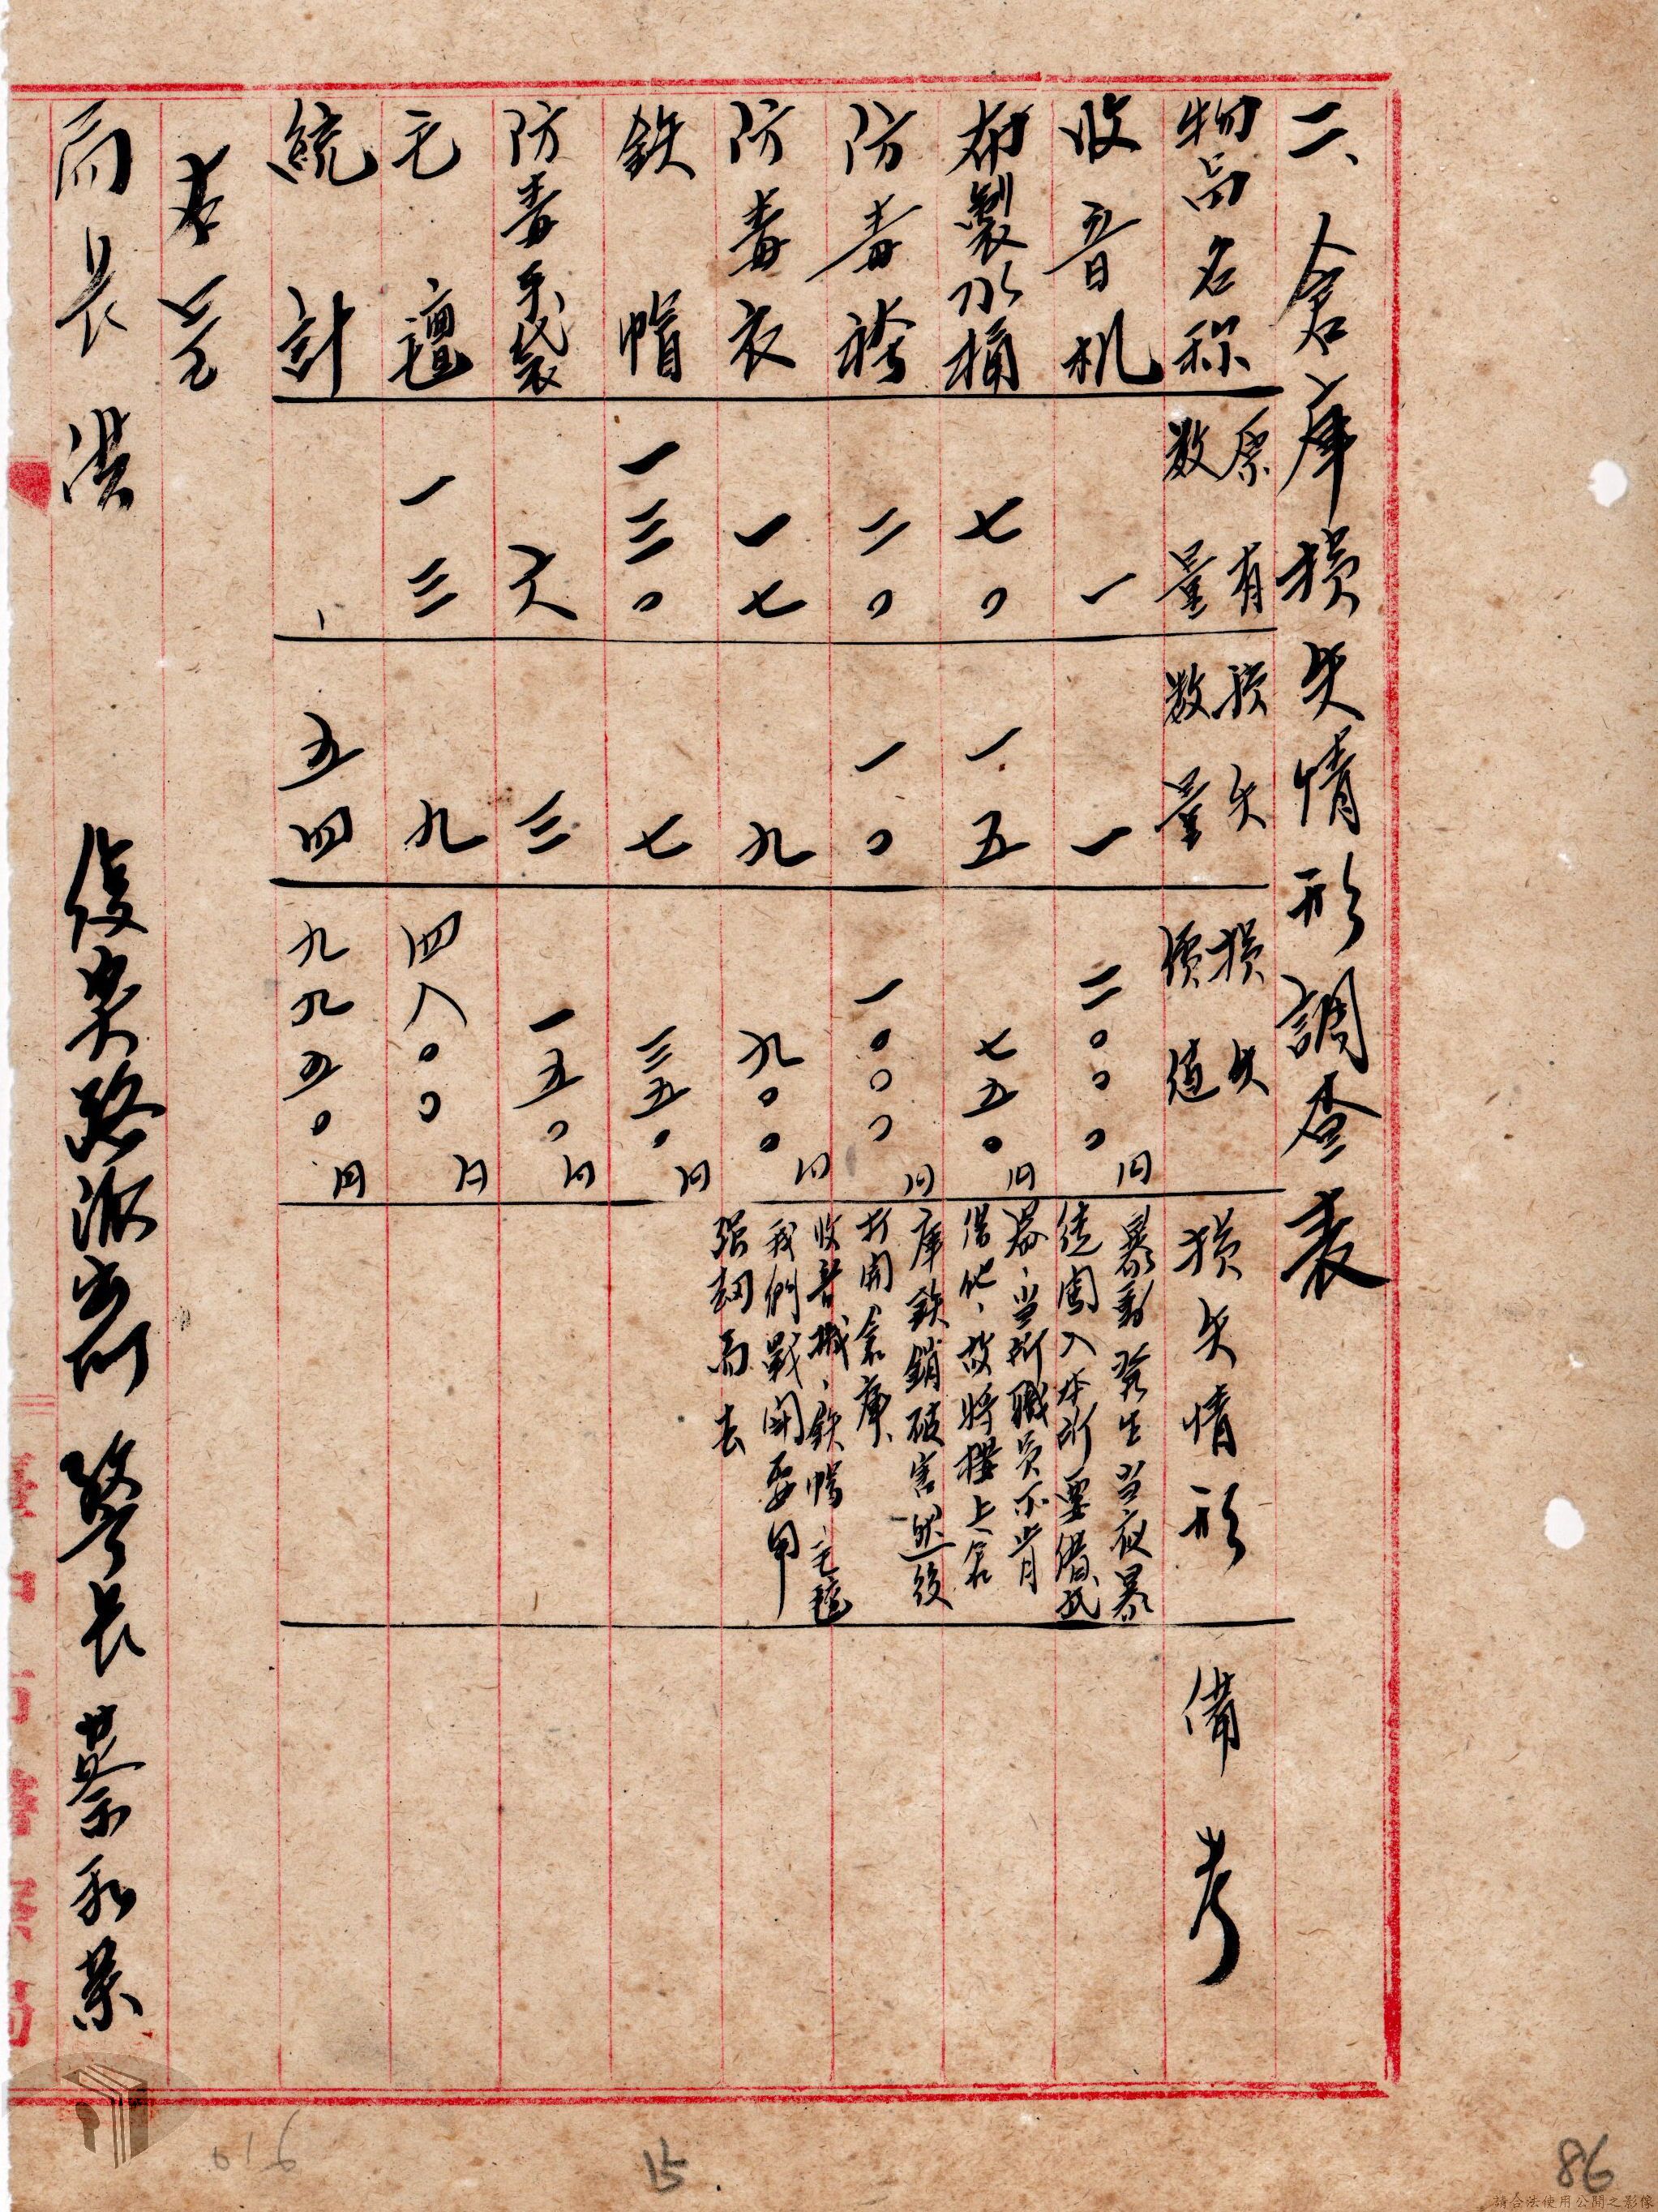 二、倉庫損失情形調查表
物品名称 原有数量 損失数量 損失價值 損失情形 備考
收音机 一 一 二〇〇〇円
布製水桶 七〇 一五 七五〇円
防毒袴 二〇 一〇 一〇〇〇円
防毒衣 一七 九 九〇〇円
鉄帽 一三〇 七 三五〇円
防毒手袋 六 三 一五〇円
毛氈 一三 九 四八〇〇円
統計 、 五四 九九五〇円
暴動發生当夜暴
徒闖入本所要借武
器、当所職員不肯
借他、故將
上倉
庫鉄鎖破害然後
打開倉庫、
收音机、鉄帽毛氈
我們戰鬪要用
强刼而去
右呈
局長 洪
後車路派出所 警長 蔡永葉
016
15.
86
請合法使用公開之影像